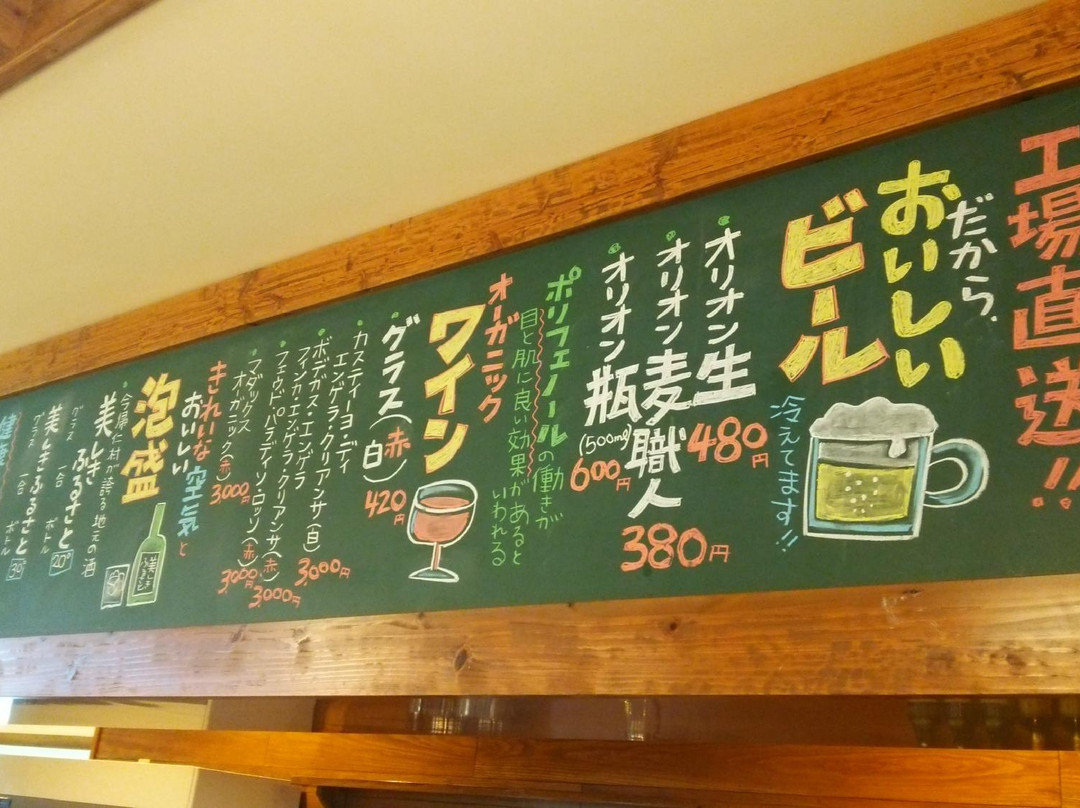 工場直送!!
だから、
おいしい
ビール
冷えてます!!
オリオン生
480円
オリオン麦職人
380円
オリオン瓶
(500ml)
600円
ポリフェノールの働きが
目と肌に良い効果があると
いわれる
オーガニック
ワイン
グラス(赤)
(白)
420円
カスティーヨ・ディ
エンゲラ・クリアンサ(白)
3,000円
ボデガス・エンゲラ
フィンカ・エンゲラ・クリアンサ(赤)
3,000円
フェウドパラディソ・ロッソ(赤)
3,000円
マダックス
オーガニック(赤)
3,000円
きれいな空気と
おいしい
泡盛
今帰仁村が誇る地元の酒
美しきふるさと
グラス 一合 ボトル
20°
美しきふるさと
グラス 一合 ボトル
30°